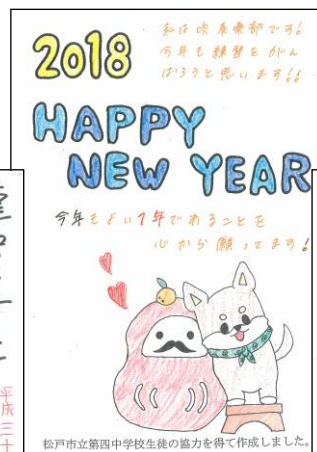 2018
私は吹奏楽部です!
今年も練習をがん
ばろうと思います!!
HAPPY
NEW YEAR
今年もよい1年であることを
心から願ってます!
松戸市立第四中学校生徒の協力を得て作成しました。
平成三十